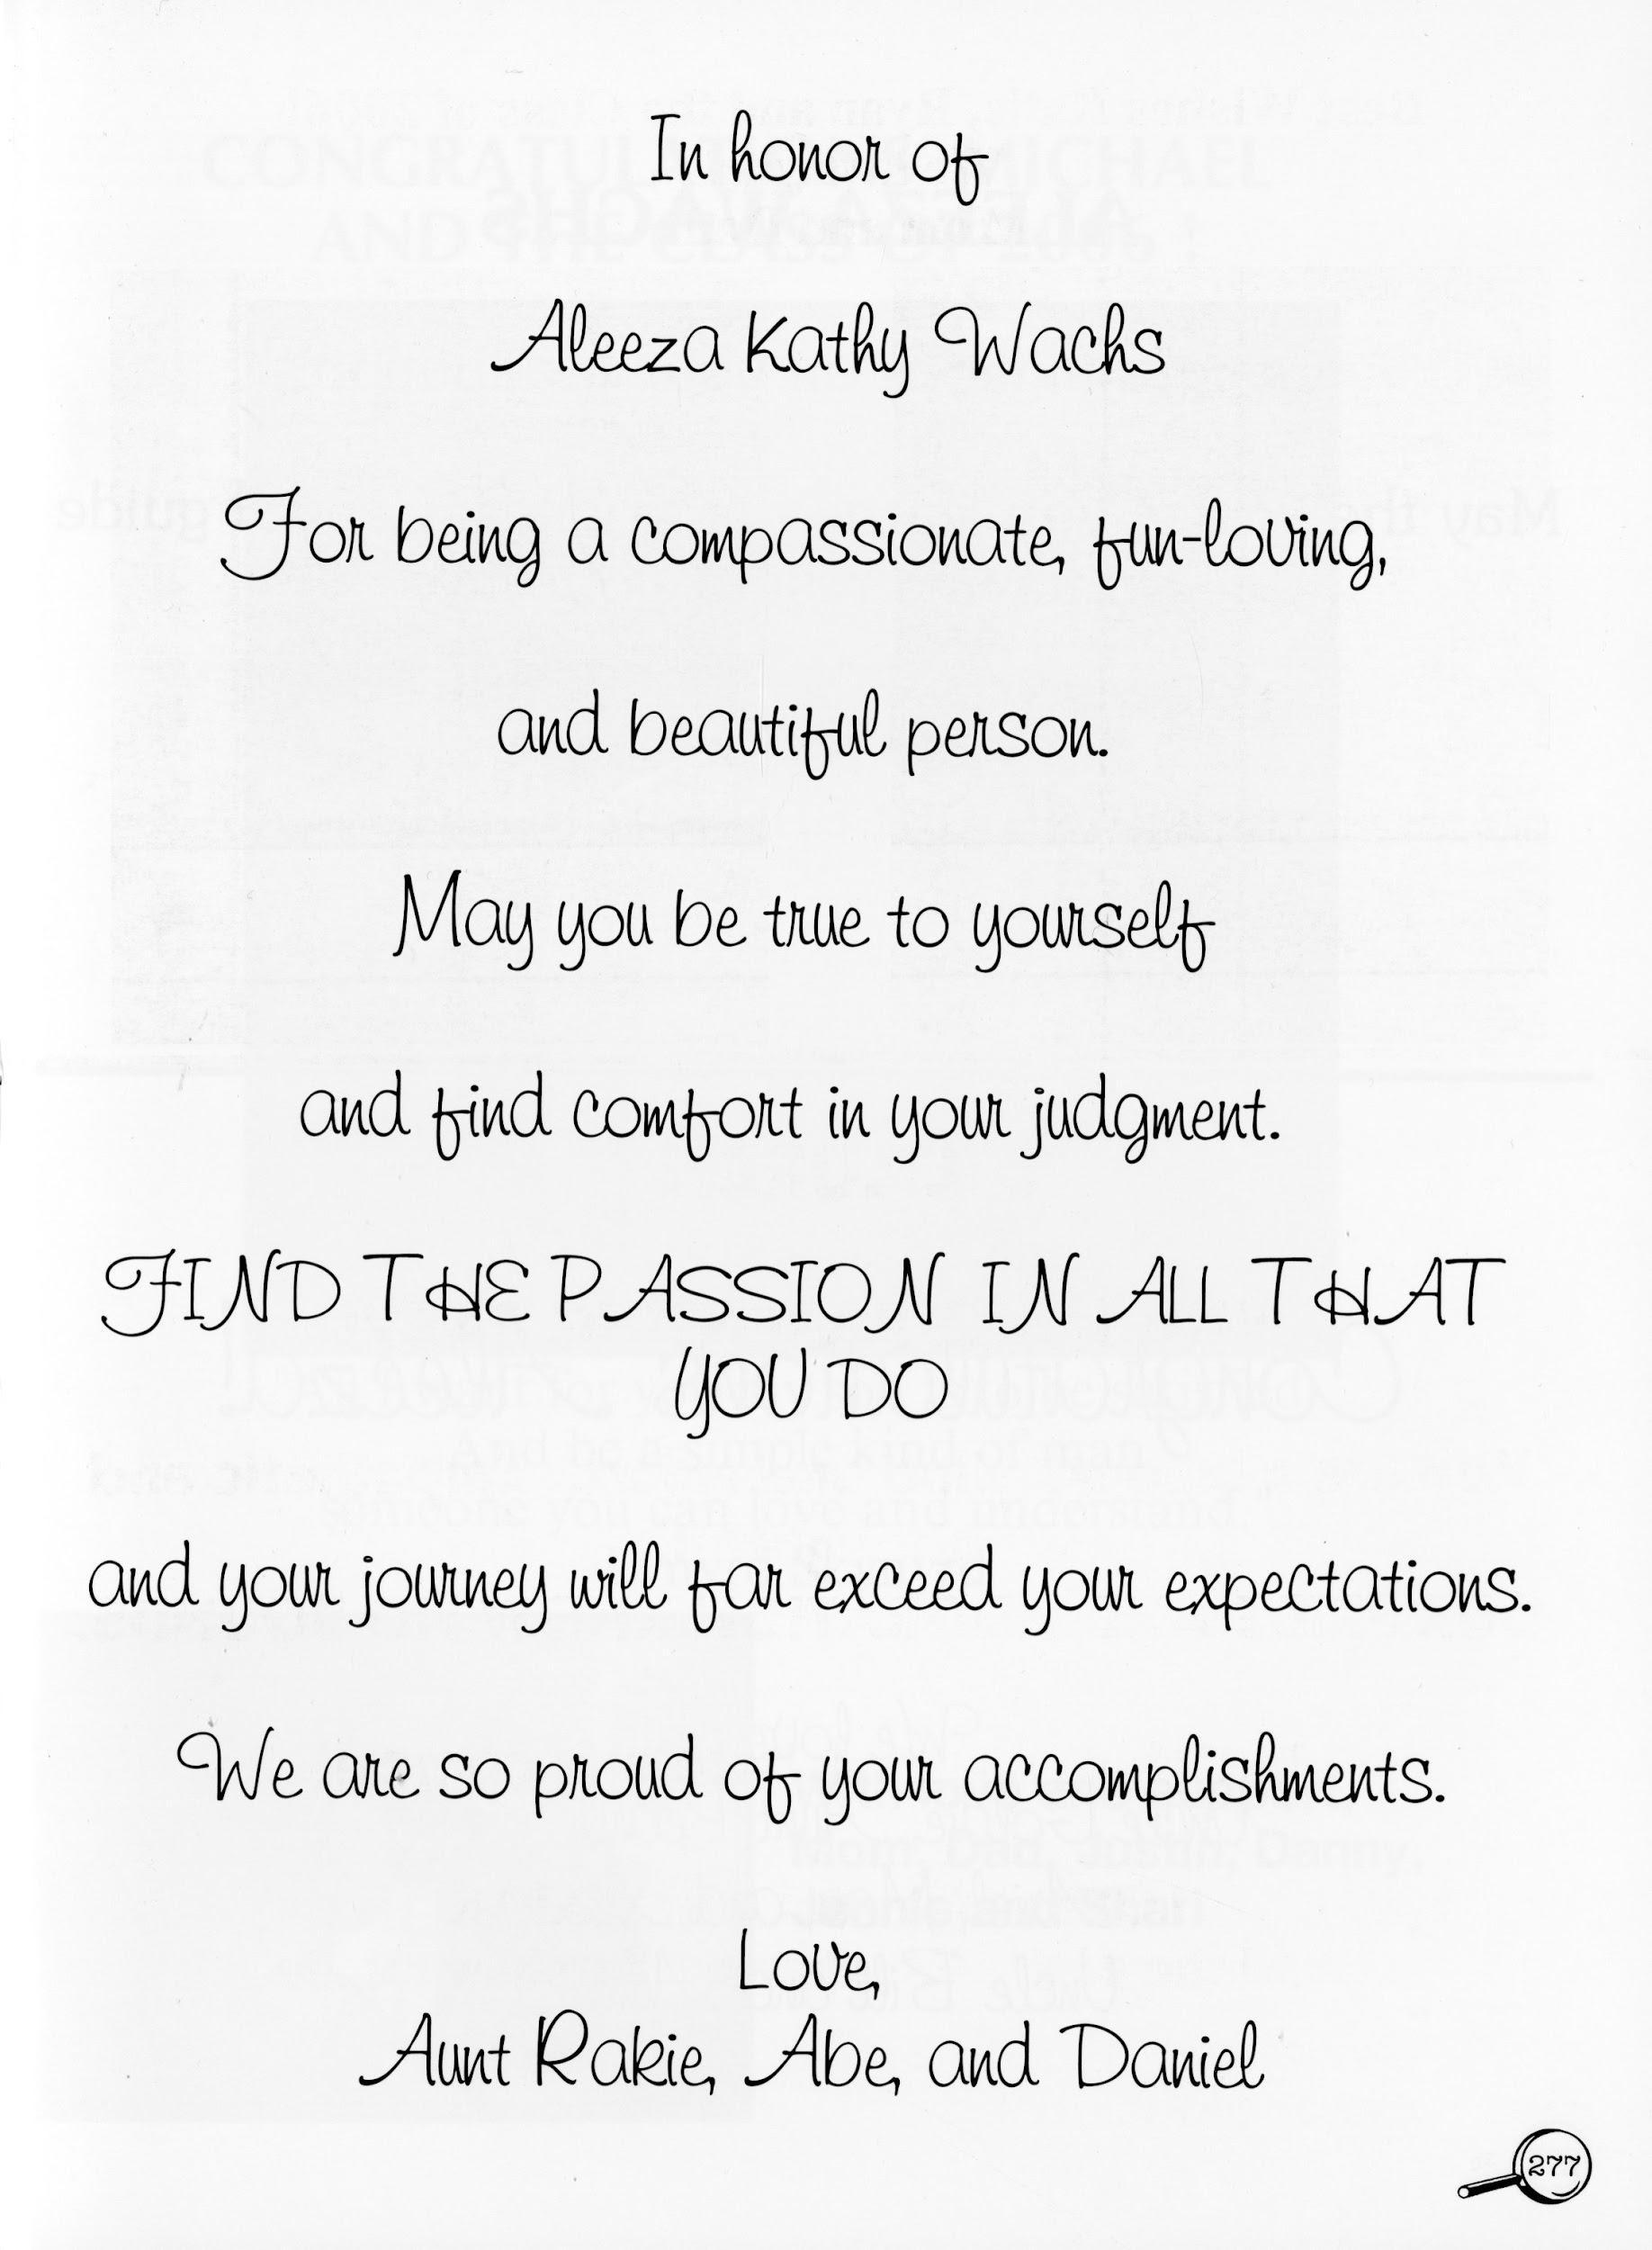 In honor of
Aleeza Kathy Wachs
For being a compassionate, fun-loving,
and beautiful person.
May you be true to yourself
and find comfort in your judgment.
FIND THE PASSION IN ALL THAT
YOU DO
and your journey will far exceed your expectations.
We are so proud of your accomplishments.
Love,
Aunt Rakie, Abe, and Daniel
277